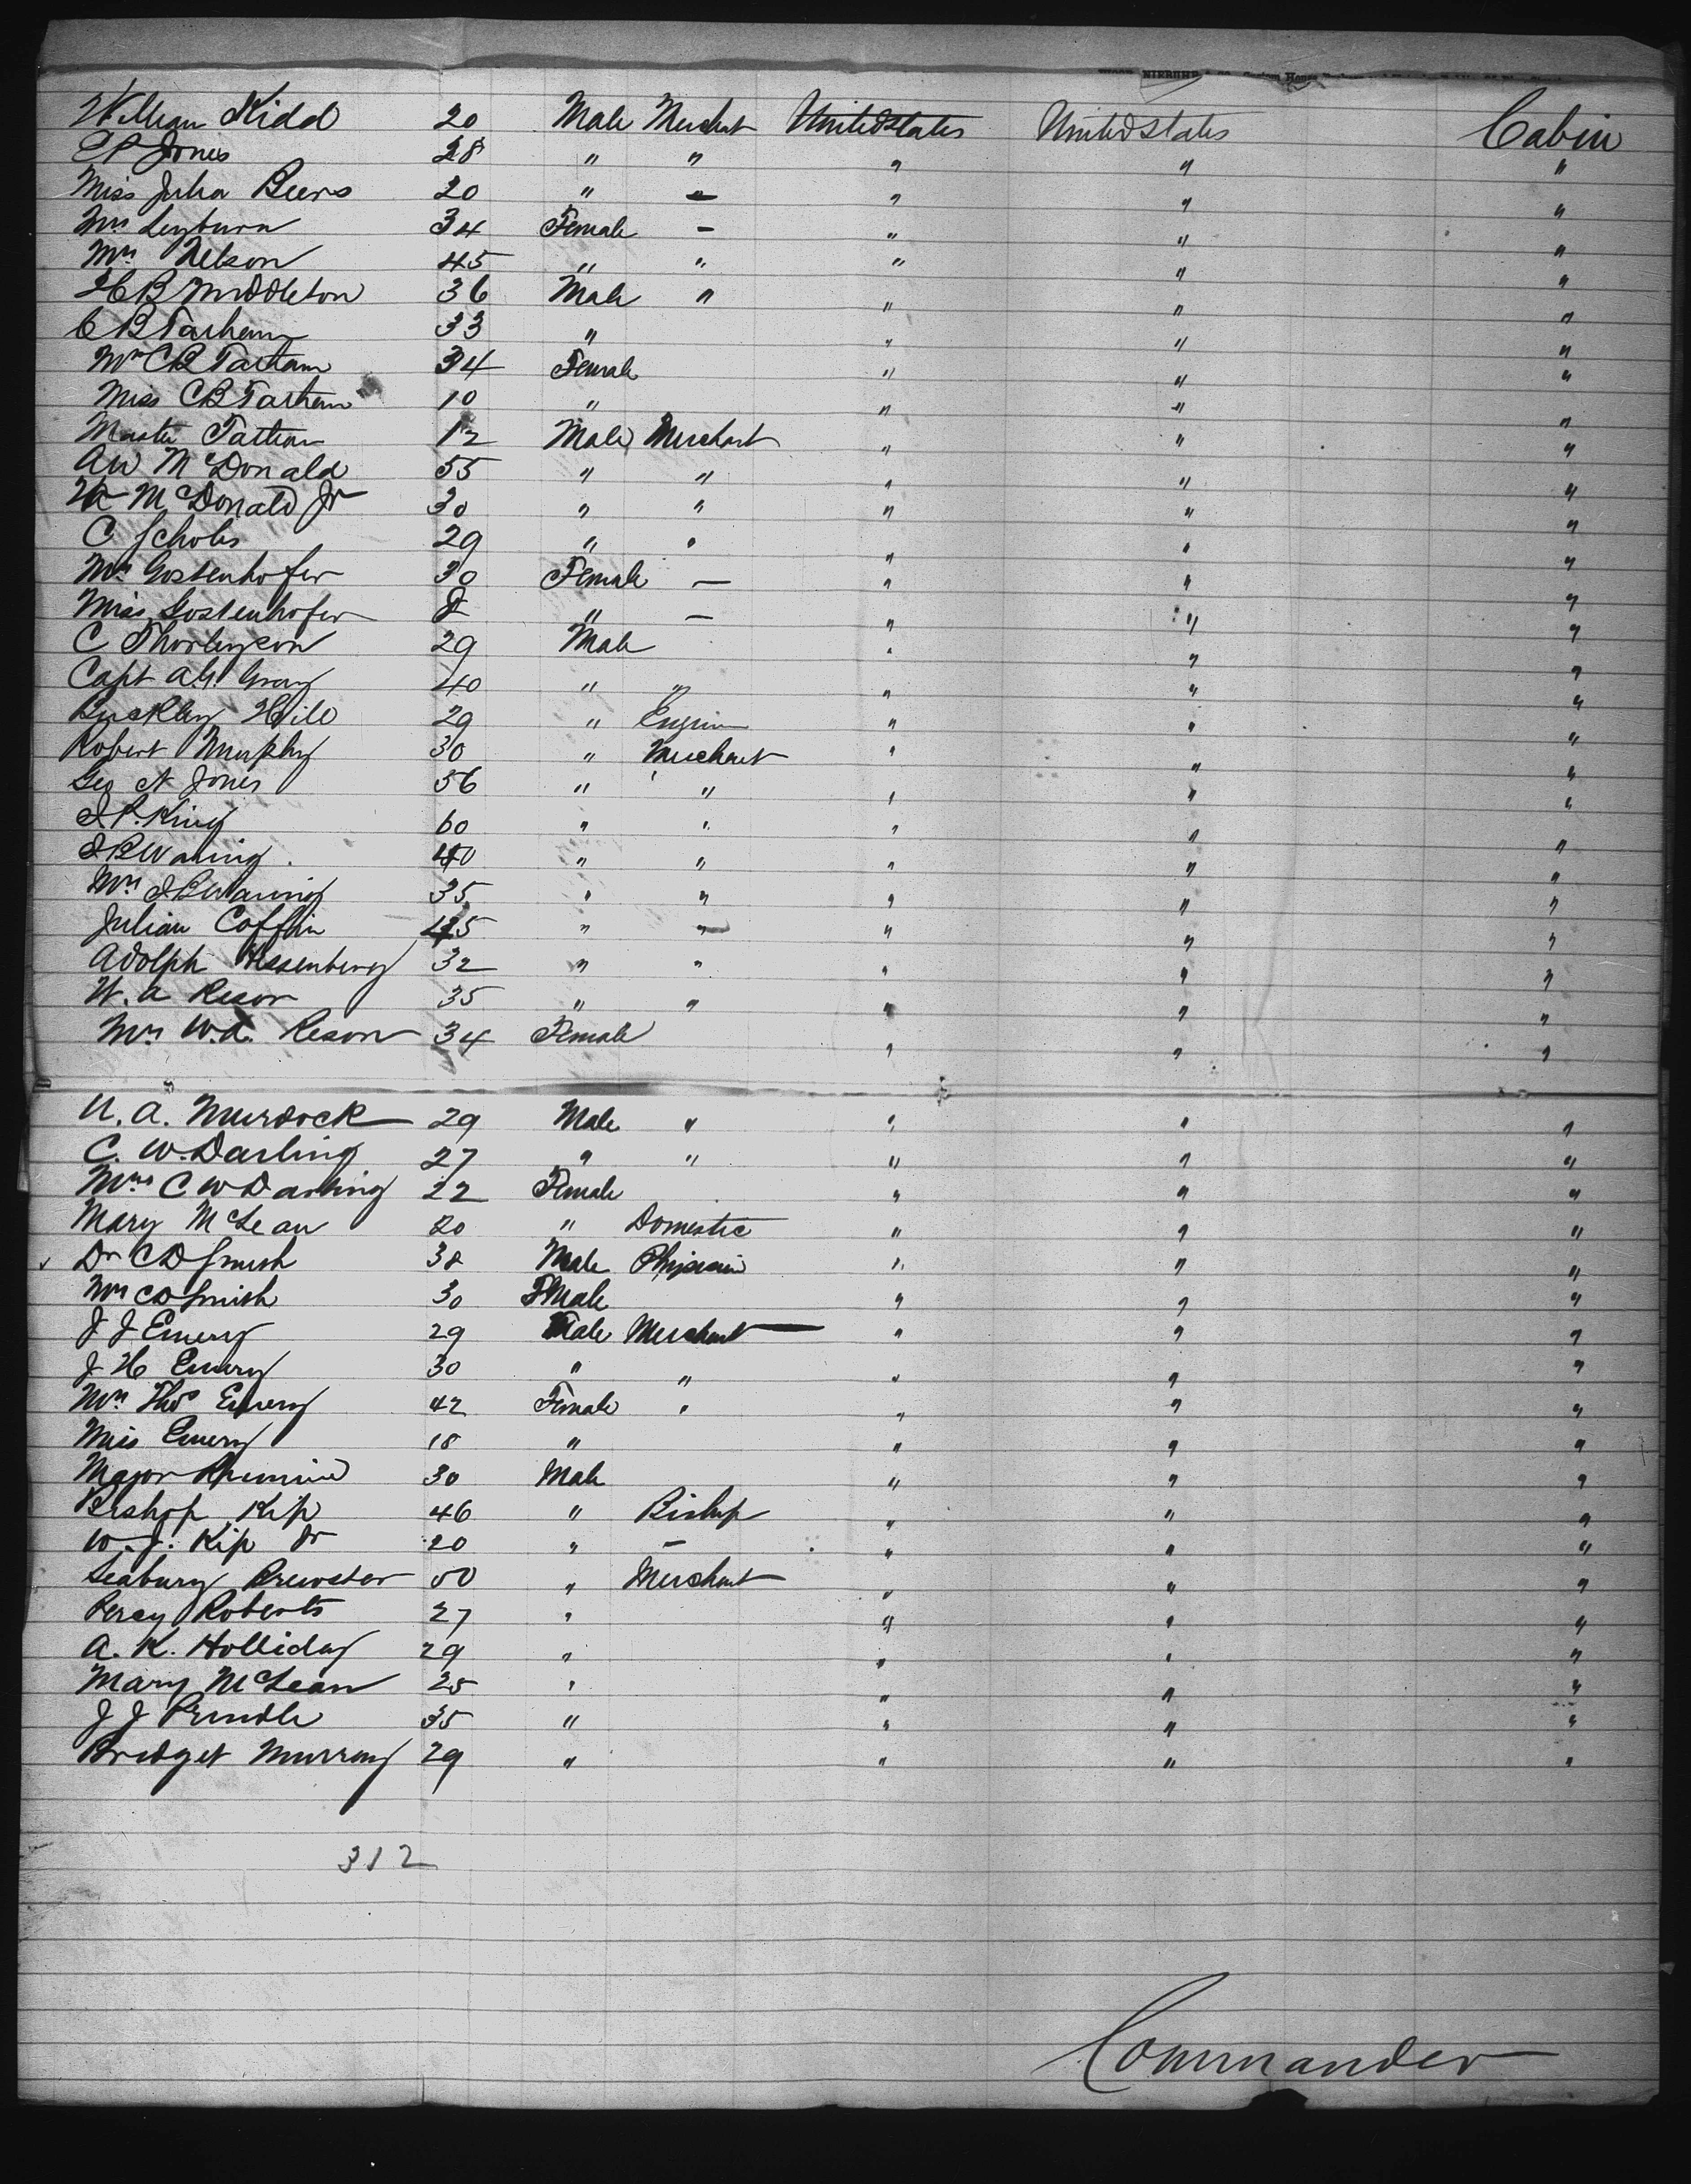 William Kidd 20 Male Merchant United States United States Cabin
C P Jones 28 " " " " "
Miss Julia Beers 20 " — " " "
Mrs Leyburn 34 Female — " " "
Mrs Nelson 45 " " " " "
H B Middleton 36 Male " " " "
C B Tatham 33 " " " "
Mrs C B Tatham 34 Female " " "
Miss C B Tatham 10 " " " "
Master Tatham 12 Male Merchant " " "
A W McDonald 55 " " " " "
McDonald Jr 30 " " " " "
C Scholes 29 " " " " "
Mrs Gostenhofer 30 Female — " " "
Miss Gostenhofer 8 " — " " "
C Thorleyson 29 Male " " "
Capt A.G. Gray 40 " " " " "
Buckley Hill 29 " Engineer " " "
Robert Murphy 30 " Merchant " " "
Geo N Jones 56 " " " " "
J.P. King 60 " " " " "
J B Waring 40 " " " " "
Mrs J B Waring 35 " " " " "
Julian Coffin 45 " " " " "
Adolph Hessenberg 32 " " " " "
W. A Resor 35 " " " " "
Mrs W.A. Resor 34 Female " " "
U. A. Murdock 29 Male " " " "
C. W. Darling 27 " " " " "
Mrs C W Darling 22 Female " " "
Mary McLean 20 " Domestic " " "
Dr C D Smith 38 Male Physician " " "
Mrs C D Smith 30 Female " " "
J J Emery 29 Male Merchant " " "
J H Emery 30 " " " " "
Mrs Thos Emery 42 Female " " " "
Miss Emery 18 " " " "
Major 30 Male " " "
Bishop Kip 46 " Bishop " " "
W. J. Kip Jr 20 " — " " "
Seabury Brewster 50 " Merchant " " "
Percy Roberts 27 " " " "
A. K. Holliday 29 " " " "
Mary McLean 25 " " " "
J J Prindle 35 " " " "
Bridget Murray 29 " " " "
312
Commander